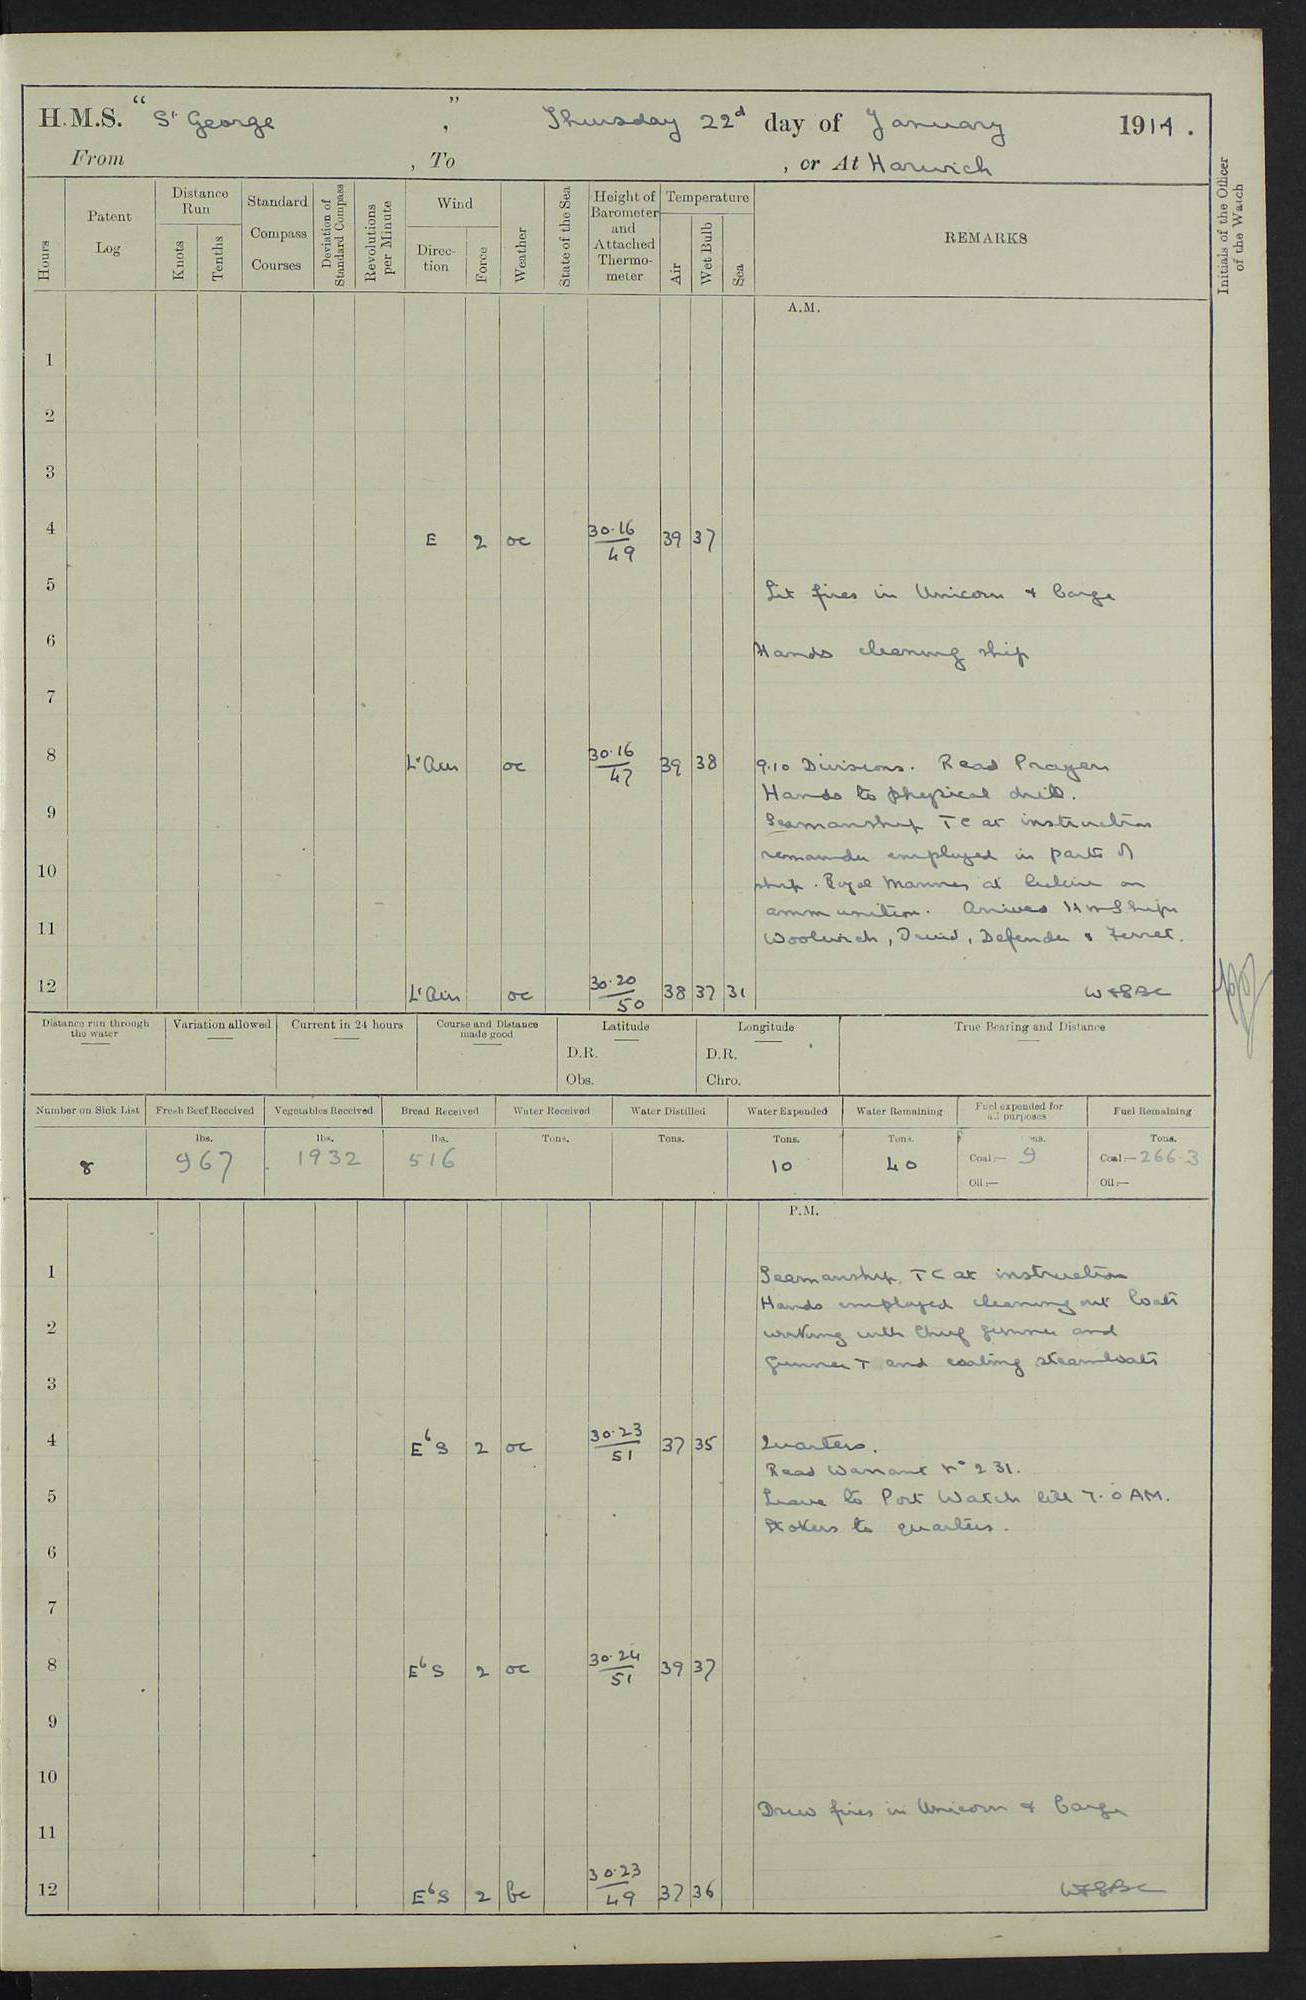 H.M.S. "St George", Thursday 22d day of January 1914.
From , To , or At Harwich
Hours
Patent Log
Distance Run
Knots
Tenths
Standard Compass Courses
Deviation of Standard Compass
Revolutions per Minute
Wind
Direction
Force
Weather
State of the Sea
Height of Barometer and Attached Thermometer
Temperature
Air
Wet Bulb
Sea
REMARKS
Initials of the Officer of the Watch
A.M.
1
2
3
4 E 2 oc 30.16 / 49 39 37
5 Lit fires in Unicorn & barge
6 Hands cleaning ship
7
8 Lt Airs oc 30.16 / 47 39 38 9.10 Divisions. Read Prayers
Hands to physical drill.
9 Seamanship T C at instruction
remainder employed in parts of
10 ship. Royal Marines at lecture on
ammunition. Arrived H M Ships
11 Woolwich, Druid, Defender & Ferret.
12 Lt Airs oc 30.20 / 50 38 37 31
Distance run through the water
Variation allowed
Current in 24 hours
Course and Distance made good
Latitude
D.R.
Obs.
Longitude
D.R.
Chro.
True Bearing and Distance
Number on Sick List 8
Fresh Beef Received lbs. 967
Vegetables Received lbs. 1932
Bread Received lbs. 516
Water Received Tons.
Water Distilled Tons.
Water Expended Tons. 10
Water Remaining Tons. 40
Fuel expended for all purposes Tons. Coal:— 9 Oil:—
Fuel Remaining Tons. Coal:— 266.3 Oil:—
P.M.
1 Seamanship T C at instruction
Hands employed cleaning out boats
2 working with Chief Gunner and
Gunner T and coaling steamboats
3
4 E b S 2 oc 30.23 / 51 37 35 Quarters.
Read Warrant No 231.
5 Leave to Port Watch till 7.0 AM.
Stokers to quarters.
6
7
8 E b S 2 oc 30.24 / 51 39 37
9
10
Drew fires in Unicorn & barge
11
12 E b S 2 bc 30.23 / 49 37 36